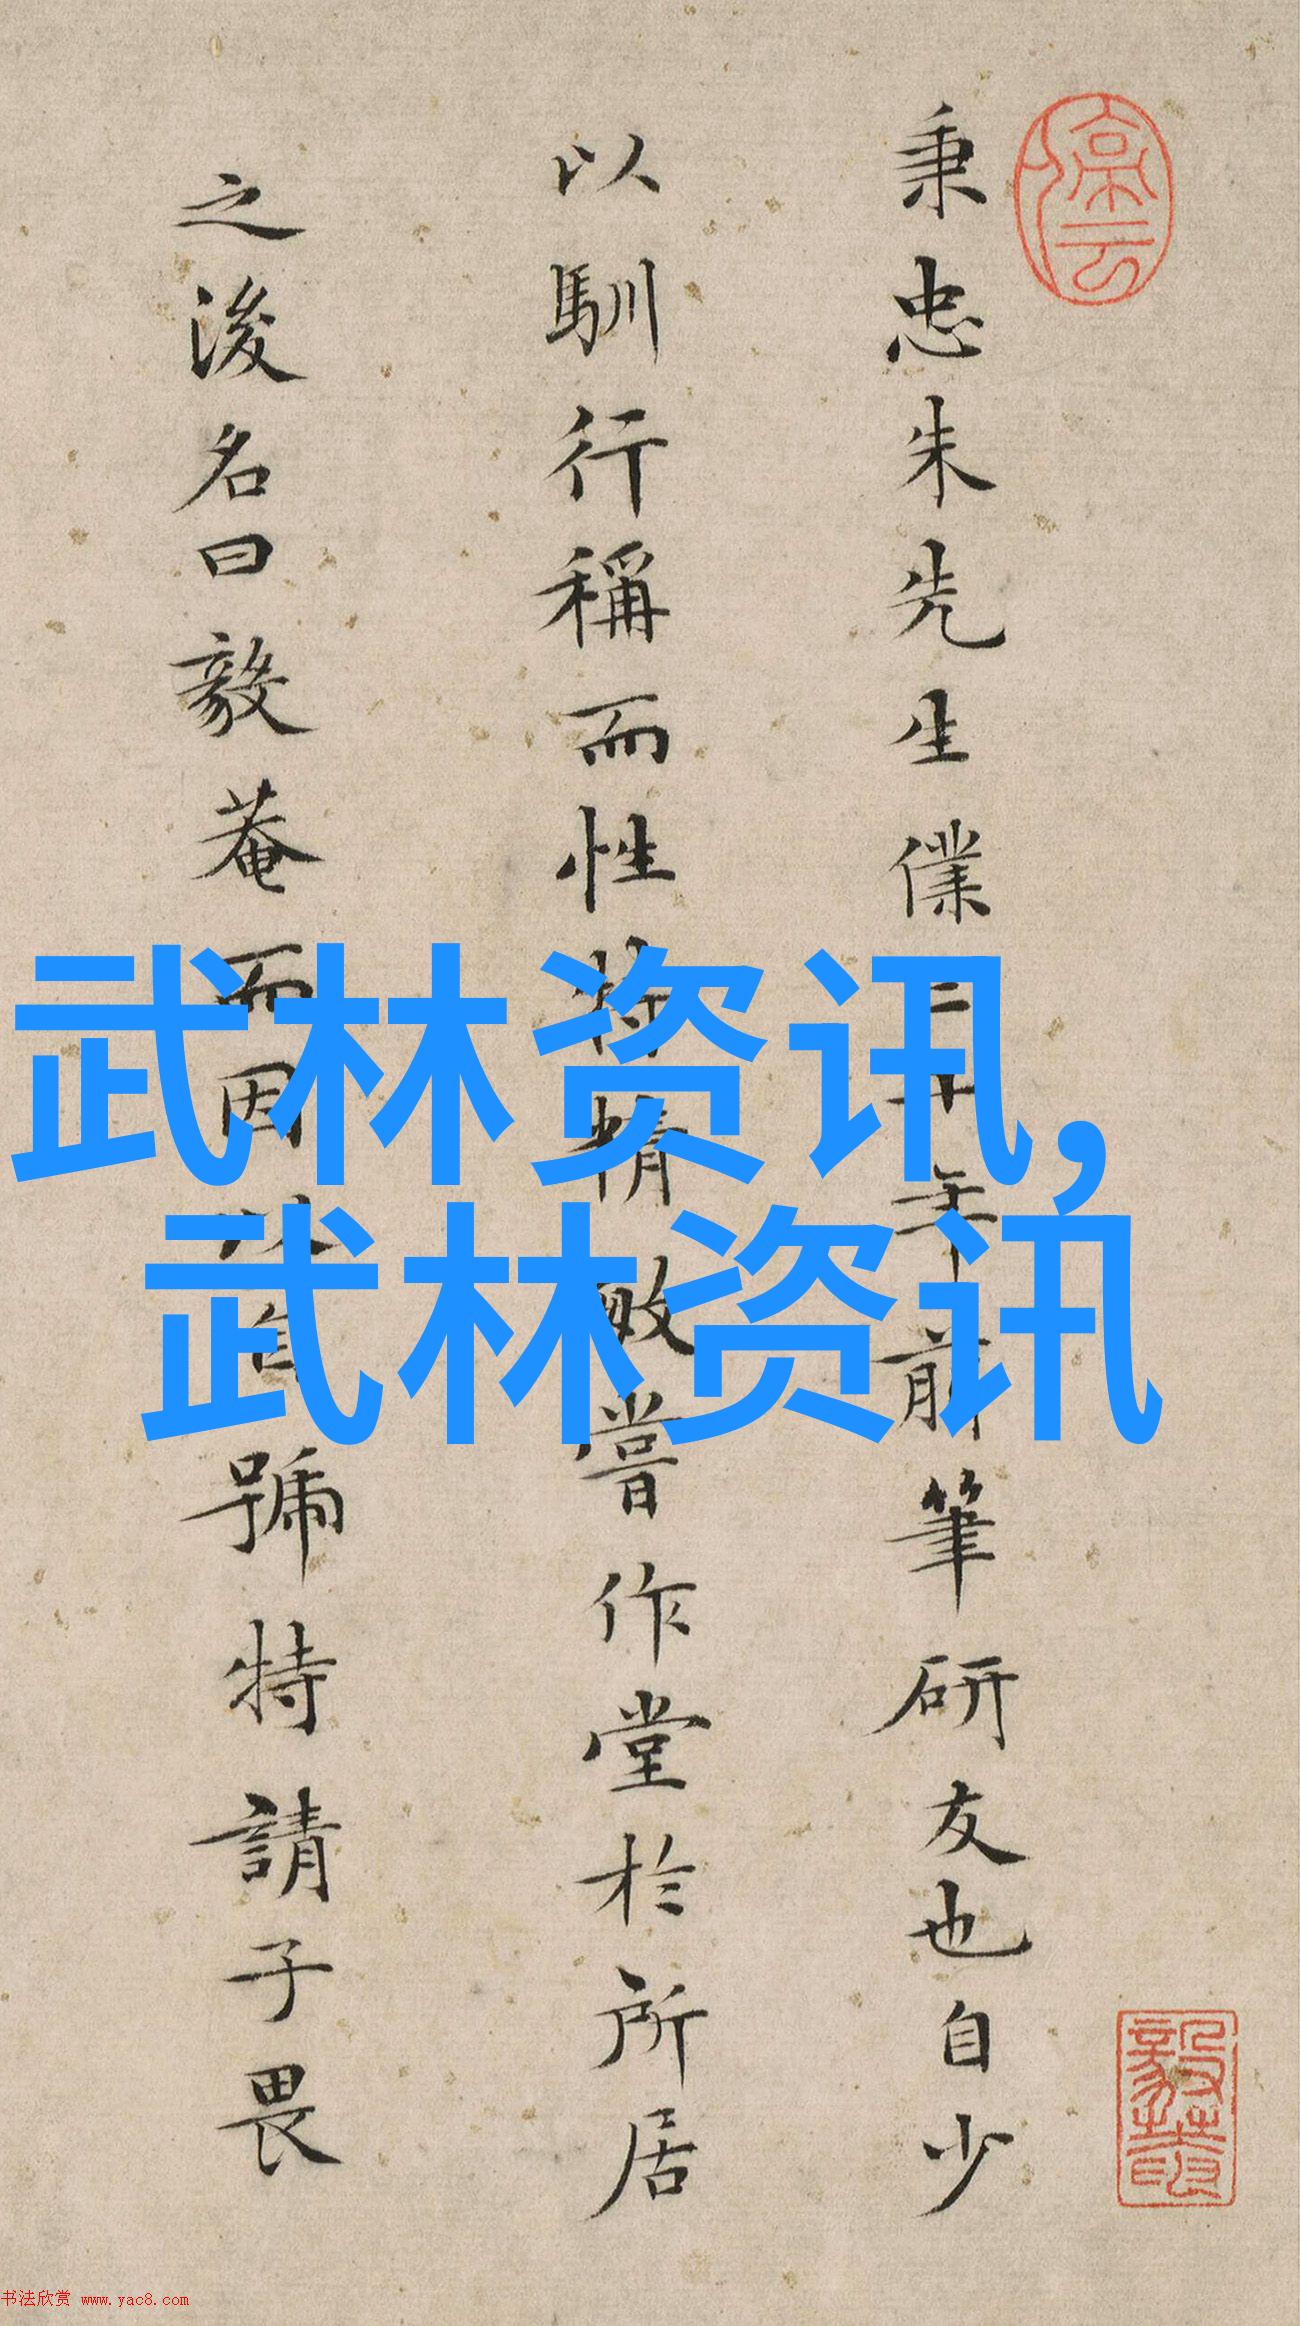 秉忠朱先生僕三十年前筆研友也自少
以馴行稱而性特精敏嘗作堂於所居
之後名曰毅菴而因以自號特請子畏
武林资讯,
武林资讯
书法欣赏 www.yac8.com